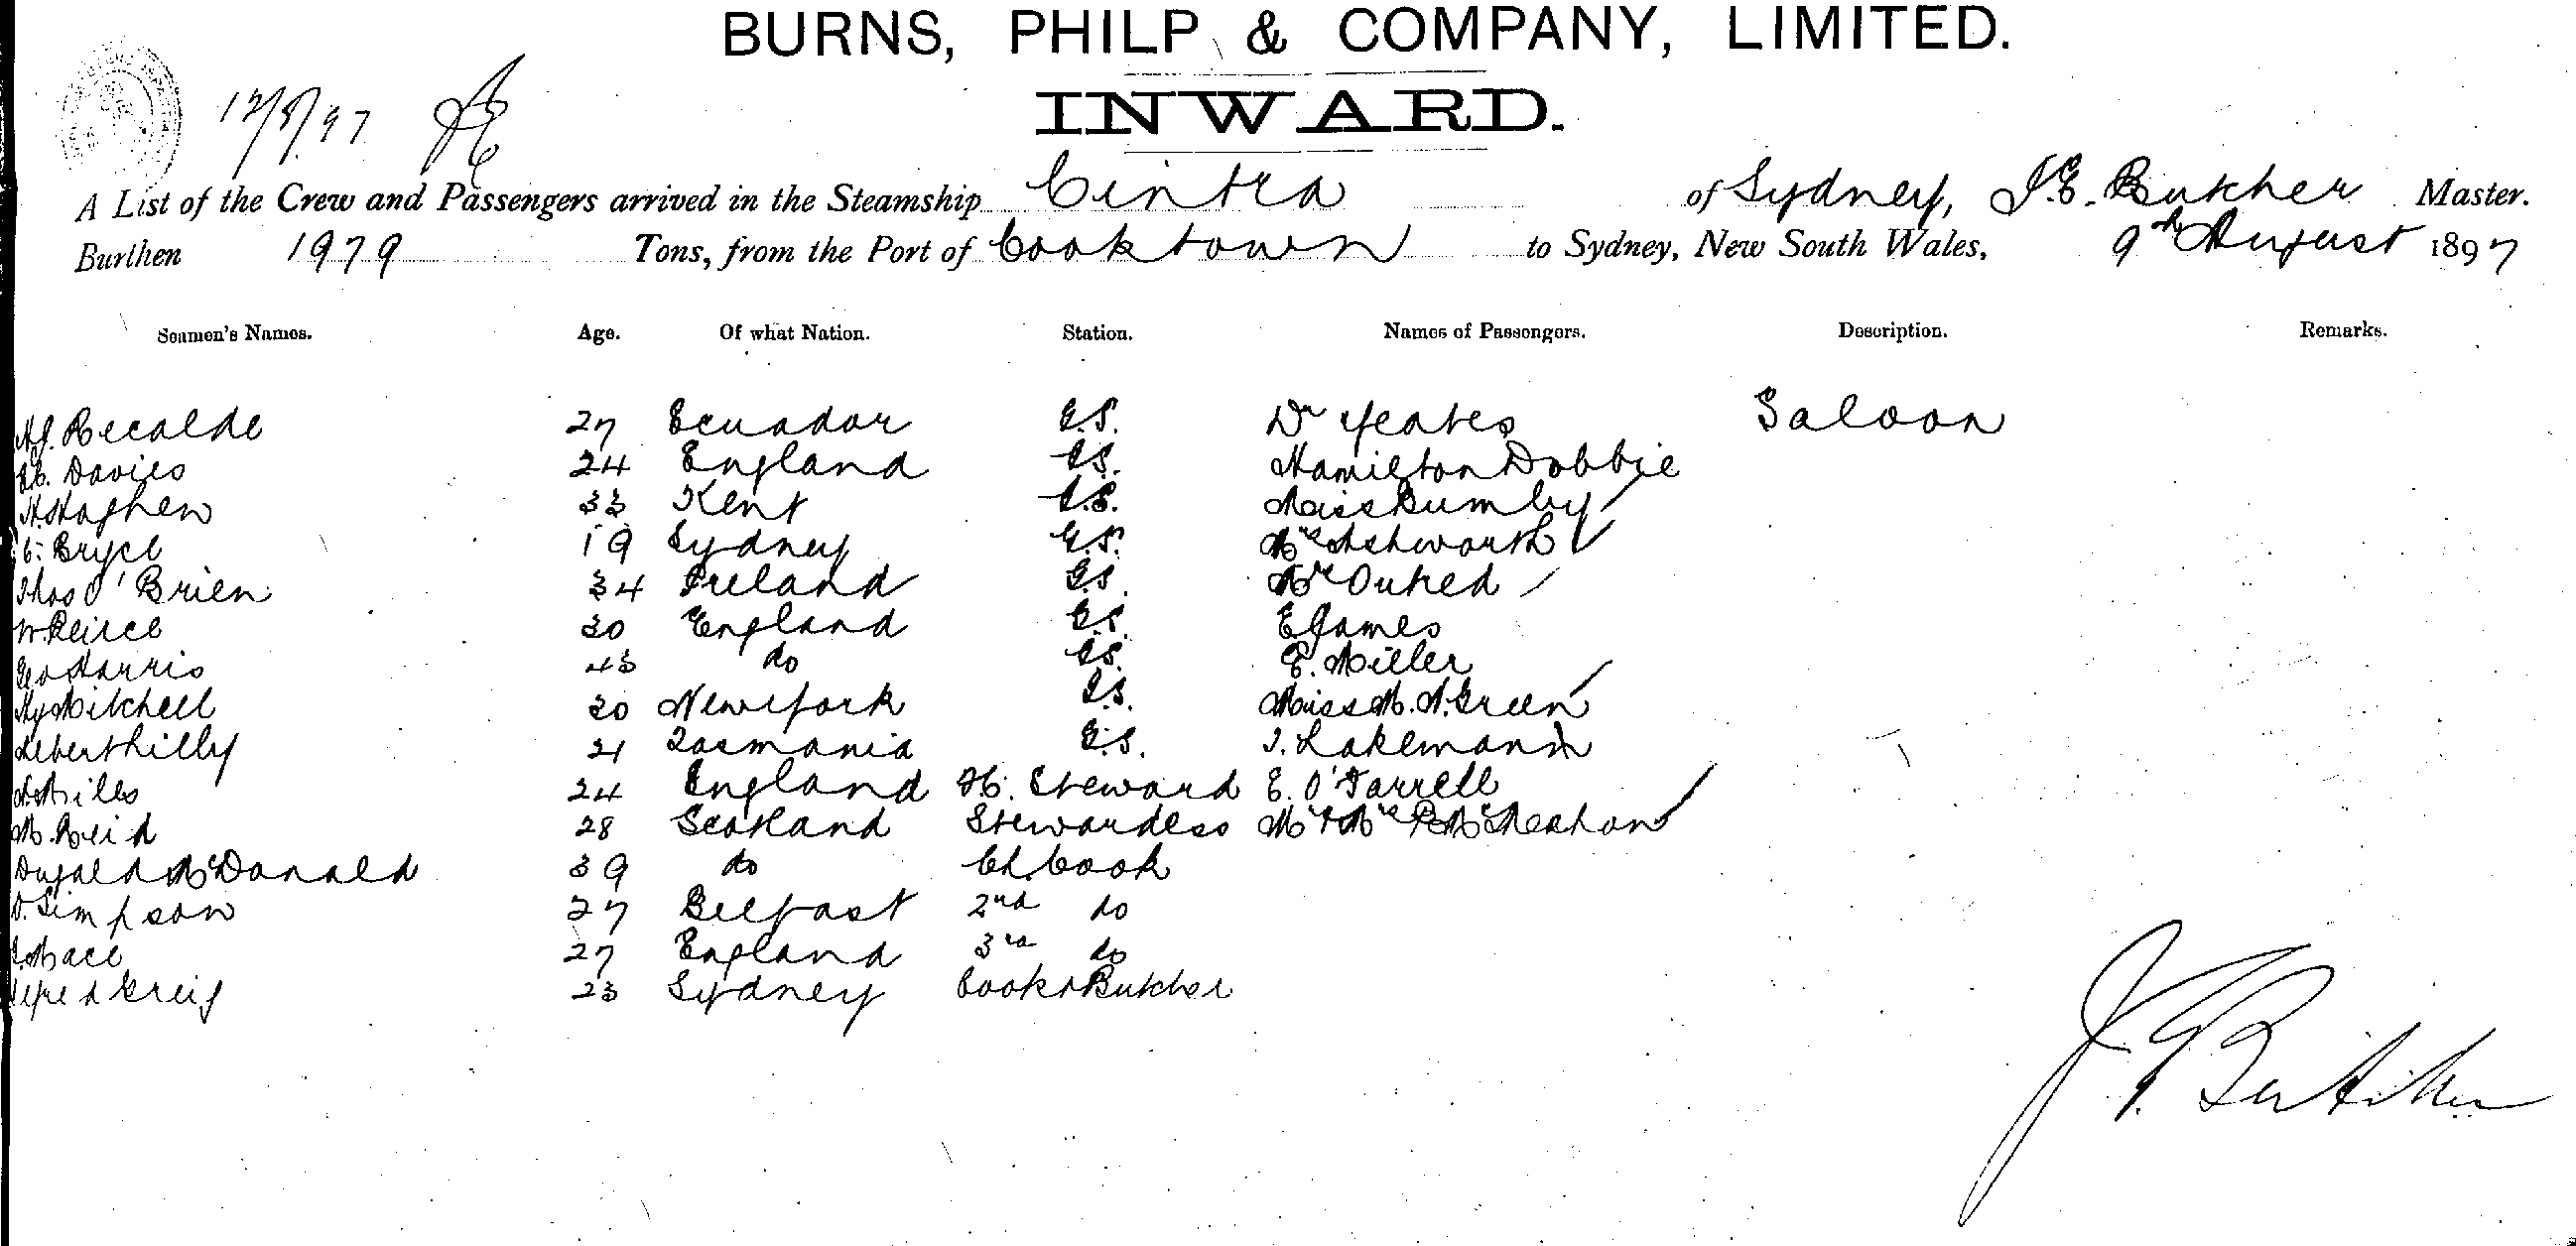 BURNS, PHILP & COMPANY, LIMITED.
INWARD.
12/8/97
A List of the Crew and Passengers arrived in the Steamship Cintra of Sydney, J.E. Butcher Master.
Burthen 1979 Tons, from the Port of Cooktown to Sydney, New South Wales, 9th August 1897
Seamen's Names. Age. Of what Nation. Station. Names of Passengers. Description. Remarks.
Recalde 27 Ecuador G.S. Dr Yeates Saloon
Davies 24 England G.S. Hamilton Dobbie
33 Kent G.S. Miss Bumby
C. Bryce 19 Sydney G.S. Mrs Ashworth
Thos O'Brien 34 Ireland G.S. Outred
W. Peirce 30 England G.S. E James
Geo Harris 43 do G.S. E. Miller
Hy Mitchell 20 New York G.S. Miss M. A. Green
21 Tasmania G.S. Lakemann
Mills 24 England Steward E. O'Farrell
M. Reid 28 Scotland Stewardess Mr & Mrs
Dugald McDonald 39 do Ch. Cook
D. Simpson 27 Belfast 2nd do
Mace 27 England 3rd do
Alfred Greig 23 Sydney Cook & Butcher
J. E. Butcher